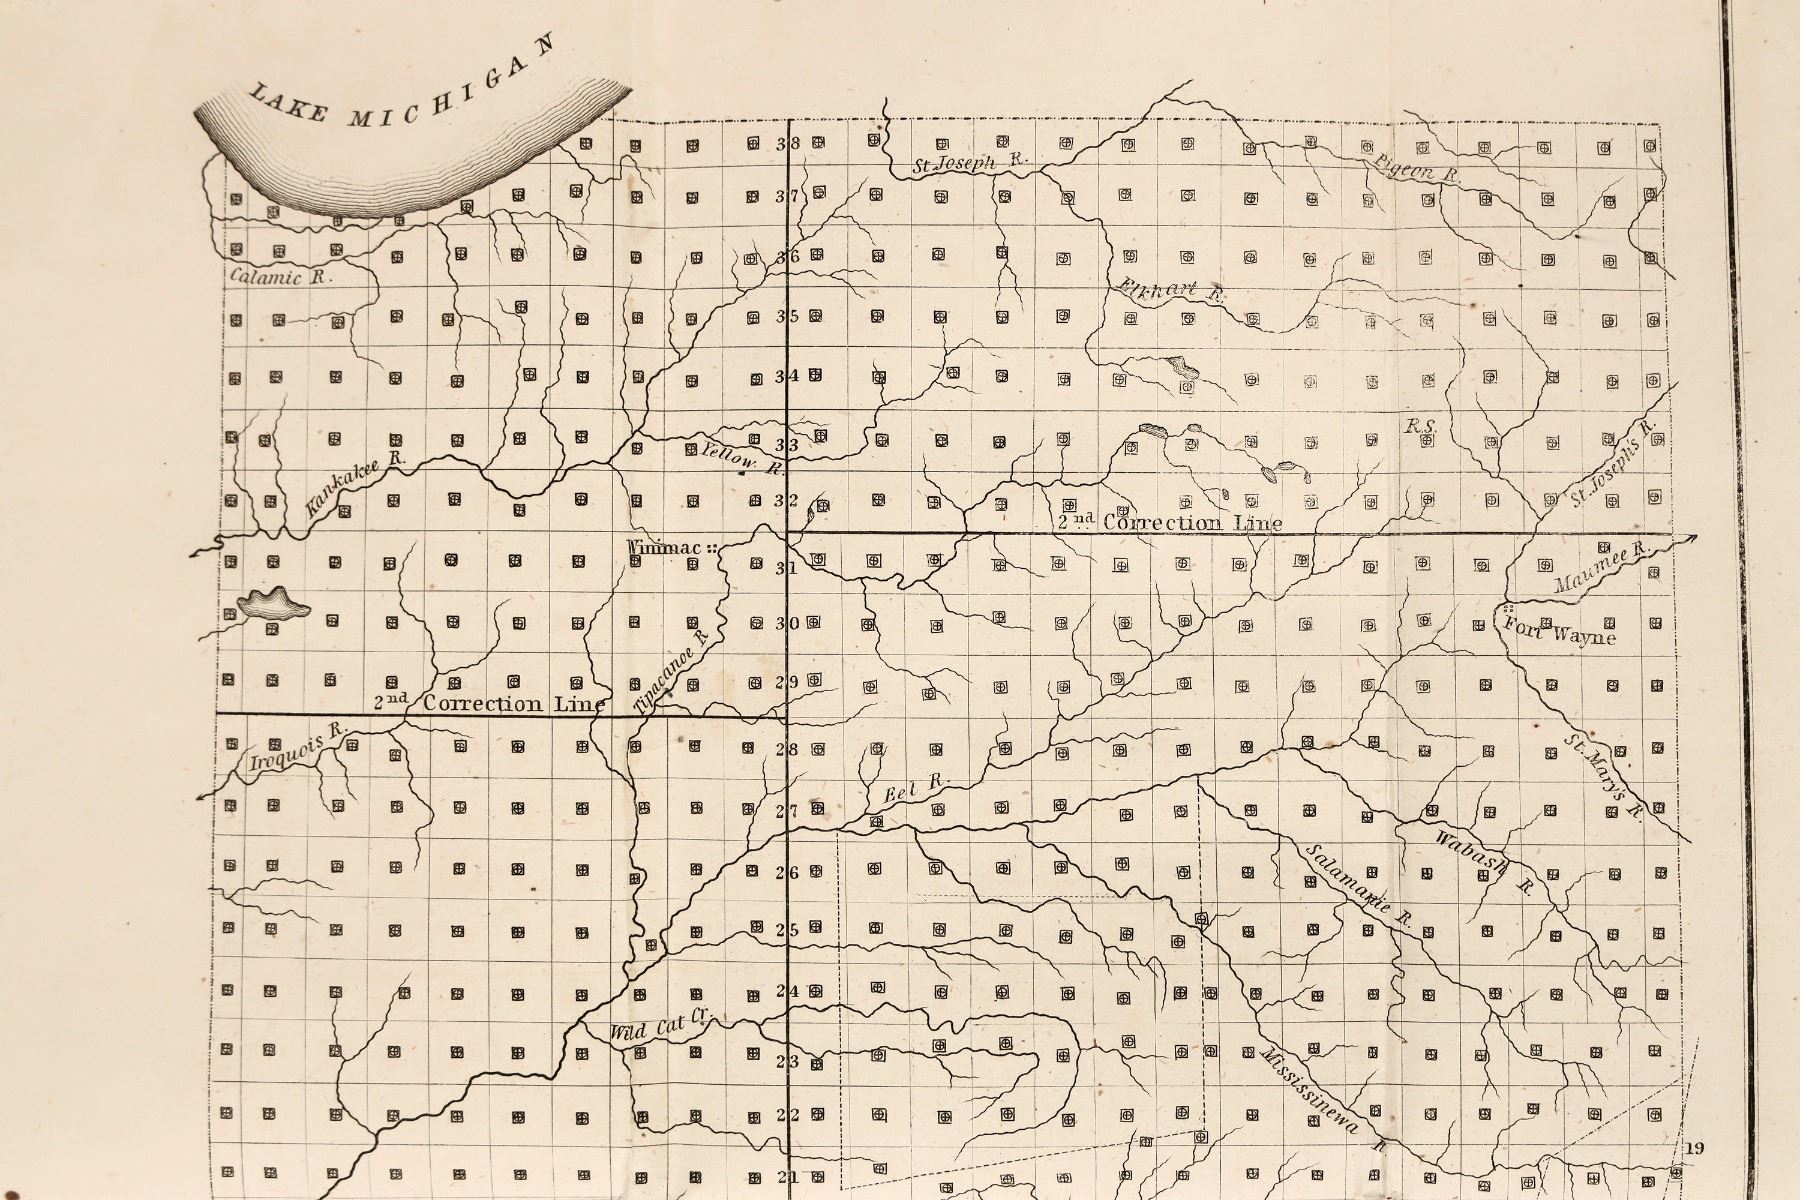 LAKE MICHIGAN
38
St Joseph R.
Pigeon R.
37
36
Calamic R.
Elkhart R.
35
34
33
R.S.
Yellow R.
Kankakee R.
St. Joseph's R.
32
2nd Correction Line
Winimac
31
Maumee R.
30
Fort Wayne
Tipacanoe R
29
2nd Correction Line
Iroquois R.
28
St. Mary's R.
Eel R.
27
Wabash R.
26
Salamanie R.
25
24
Wild Cat Cr.
23
Mississinewa R
22
19
21